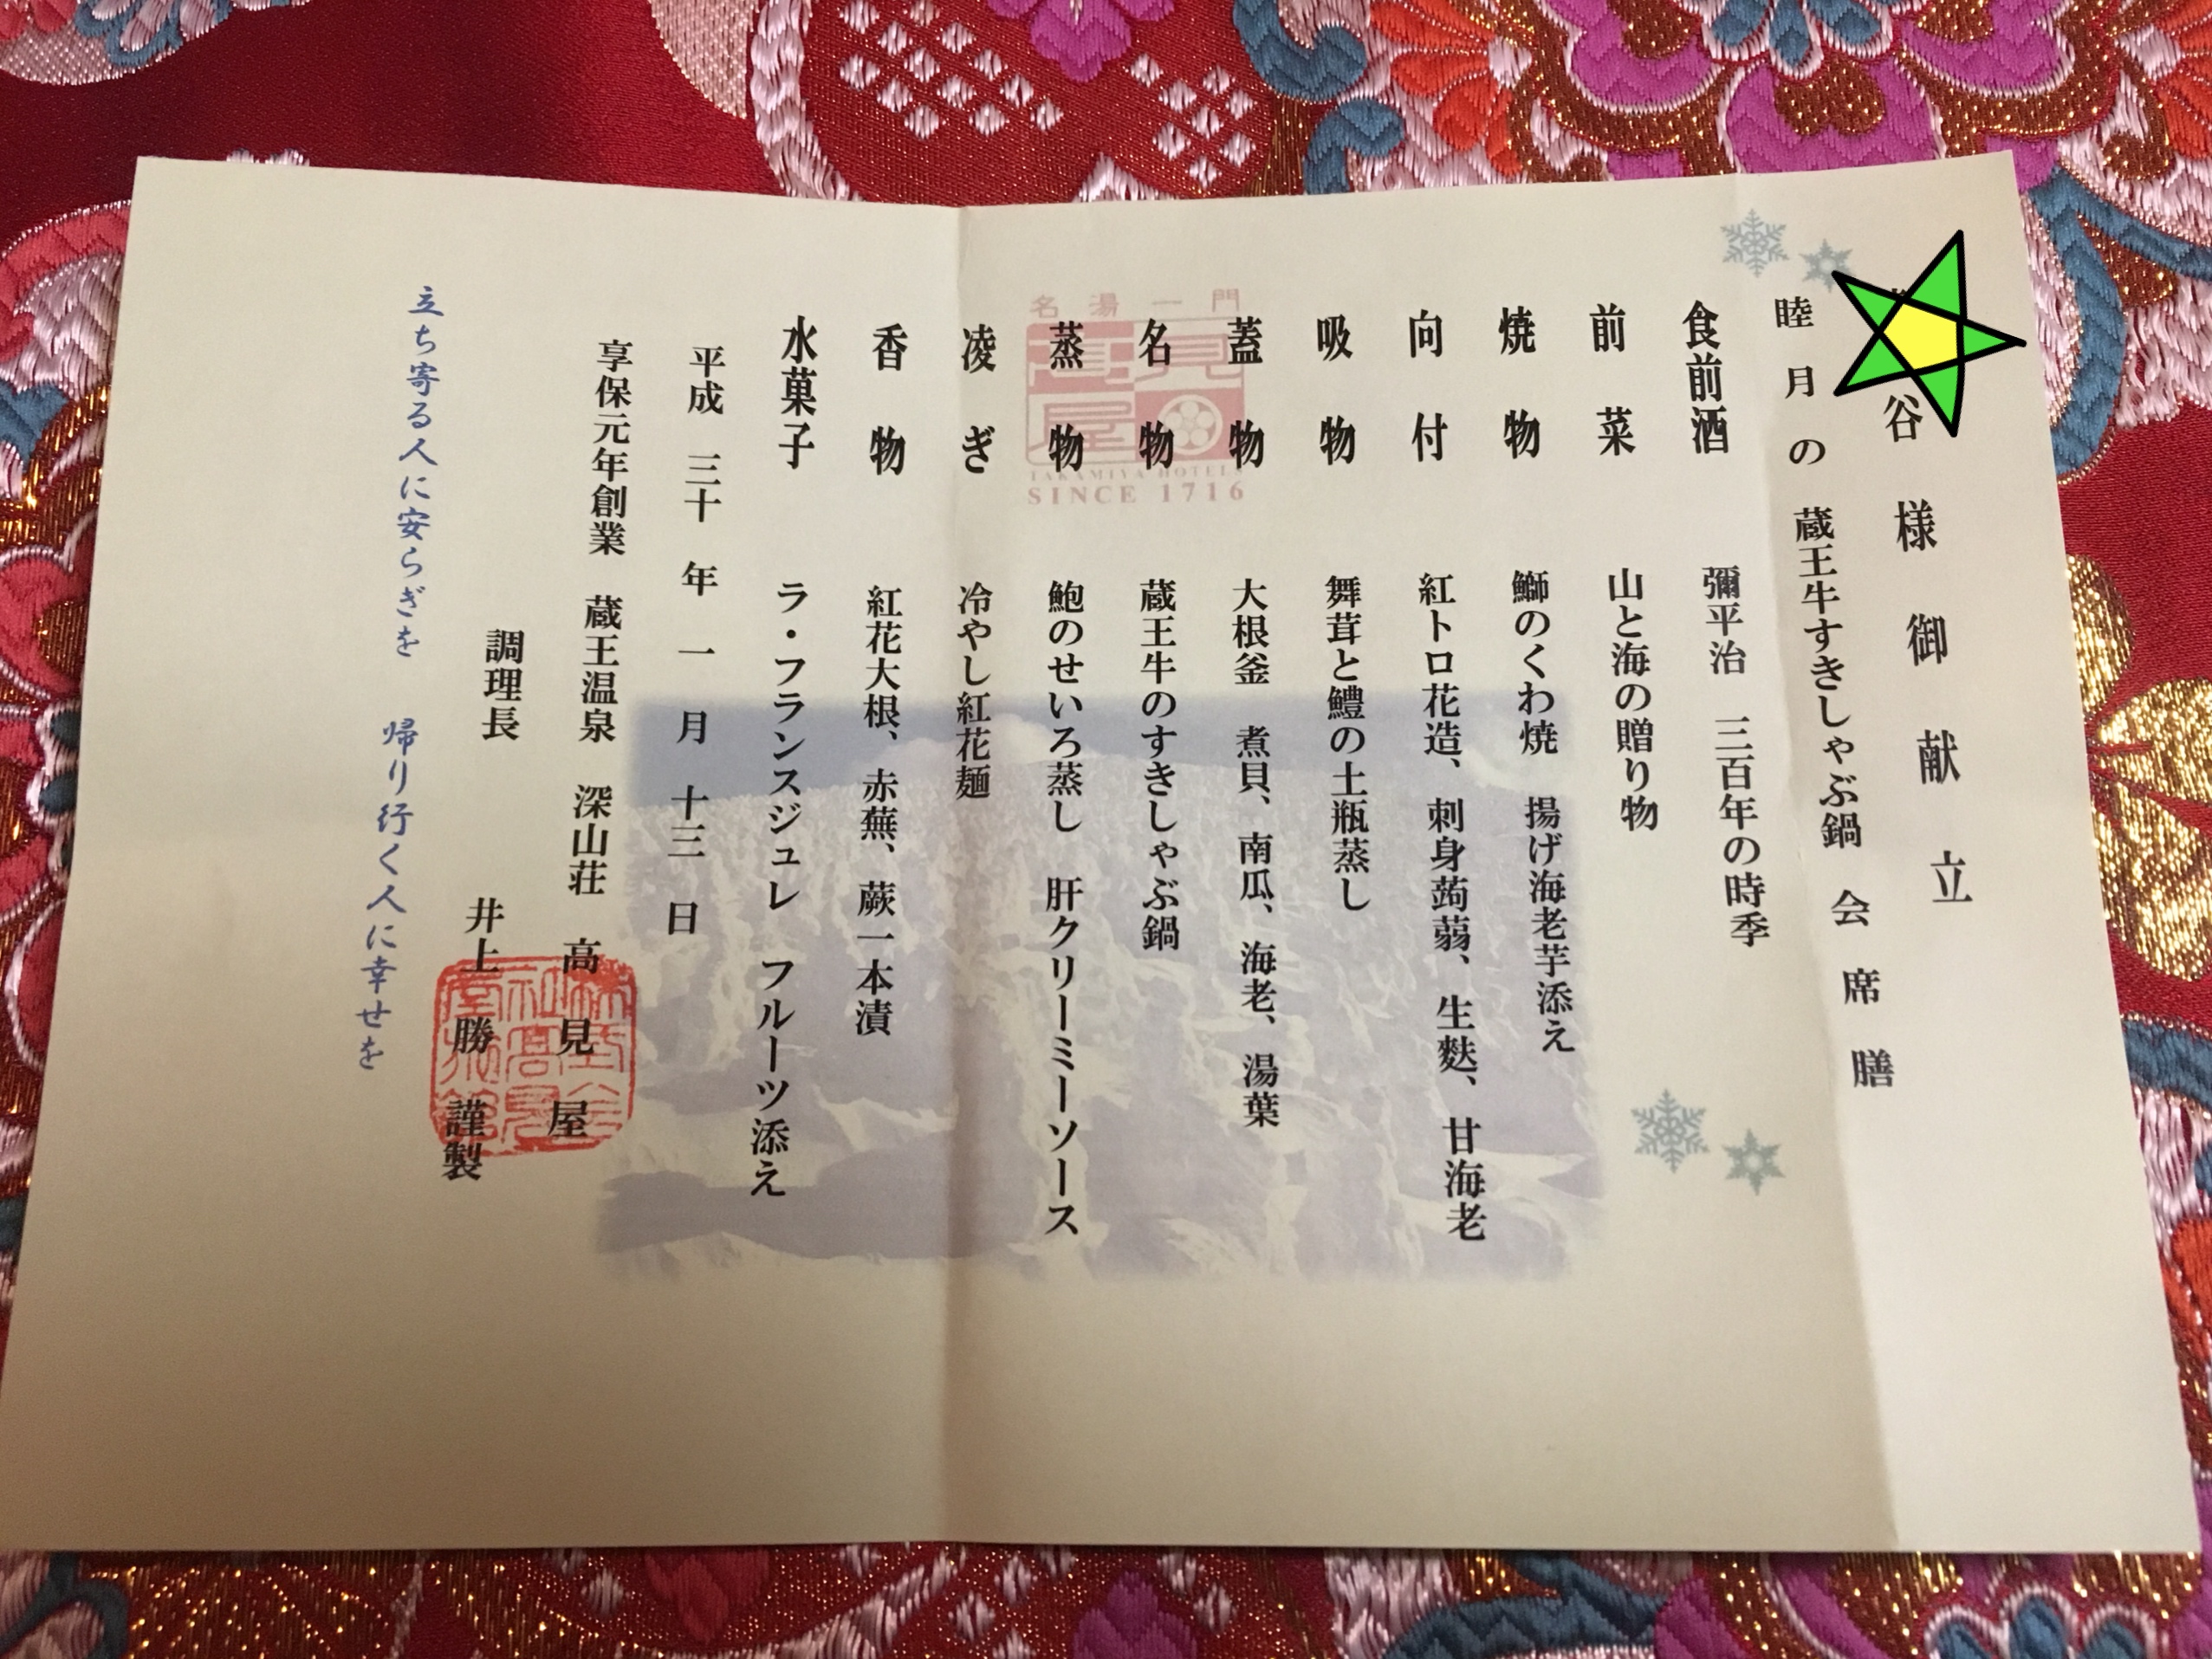 谷様御献立
睦月の 蔵王牛すきしゃぶ鍋 会席膳
食前酒 彌平治 三百年の時季
前菜 山と海の贈り物
焼物 鰤のくわ焼 揚げ海老芋添え
向付 紅トロ花造、刺身蒟蒻、生麩、甘海老
吸物 舞茸と鱧の土瓶蒸し
蓋物 大根釜 煮貝、南瓜、海老、湯葉
名物 蔵王牛のすきしゃぶ鍋
蒸物 鮑のせいろ蒸し 肝クリーミーソース
凌ぎ 冷やし紅花麺
香物 紅花大根、赤蕪、蕨一本漬
水菓子 ラ・フランスジュレ フルーツ添え
平成 三十 年 一 月 十三 日
享保元年創業 蔵王温泉 深山荘 高見屋
調理長 井上 勝 謹製
立ち寄る人に安らぎを 帰り行く人に幸せを
名湯一門
高見屋
TAKAMIYA HOTELS
SINCE 1716